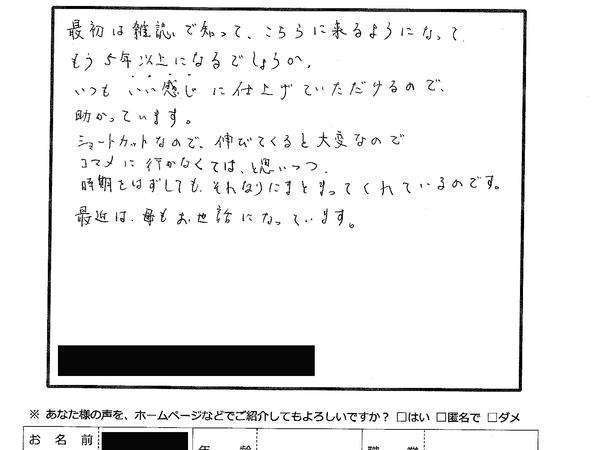 最初は雑誌で知って、こちらに来るようになって
もう5年以上になるでしょうか。
いつも いい感じ に仕上げていただけるので、
助かっています。
ショートカットなので、伸びてくると大変なので
コマメに行かなくては、と思いつつ、
時期をはずしても、それなりにまとまってくれているのです。
最近は、母もお世話になっています。
※ あなた様の声を、ホームページなどでご紹介してもよろしいですか？ □はい □匿名で □ダメ
お名前 年齢 職業